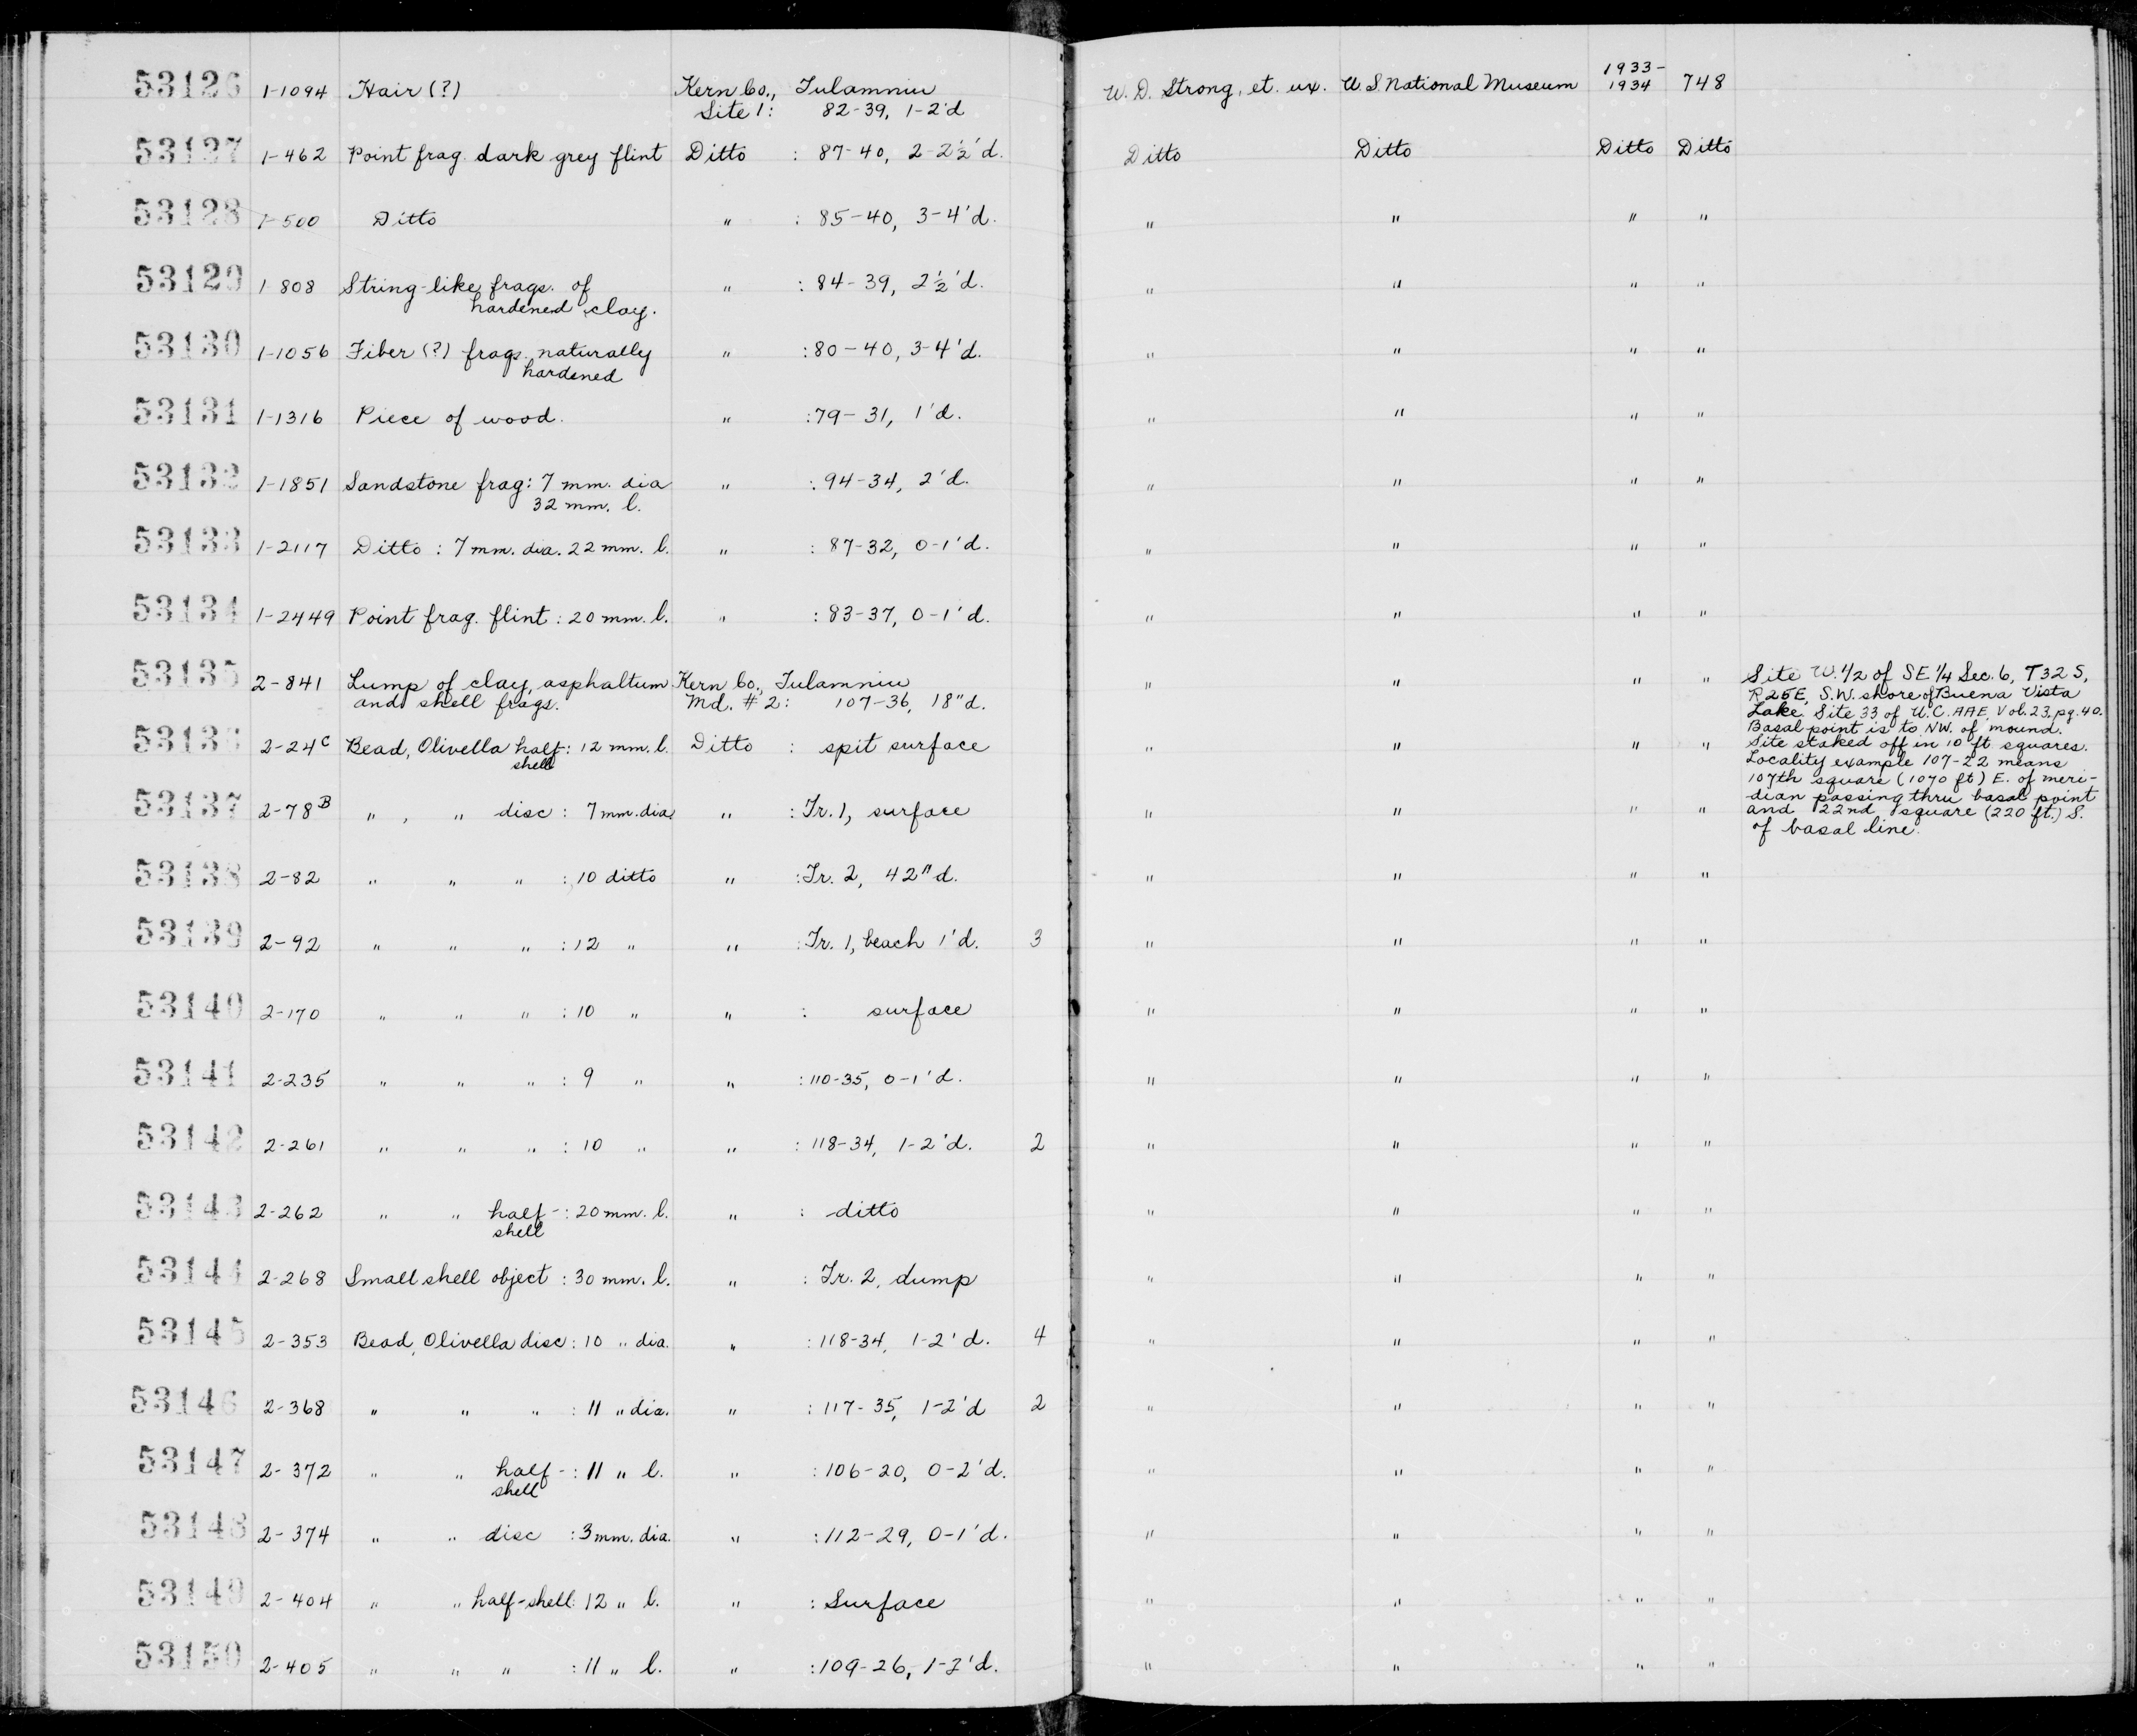 53126 1-1094 Hair (?) Kern Co., Tulamniu W. D. Strong, et. ux. U. S. National Museum 1933-1934 748
Site 1: 82-39, 1-2'd
53127 1-462 Point frag. dark grey flint Ditto : 87-40, 2-2½'d. Ditto Ditto Ditto Ditto
53128 1-500 Ditto " : 85-40, 3-4'd. " " " "
53129 1-808 String-like frags. of " : 84-39, 2½'d. " " " "
hardened clay.
53130 1-1056 Fiber (?) frags. naturally " : 80-40, 3-4'd. " " " "
hardened
53131 1-1316 Piece of wood. " : 79-31, 1'd. " " " "
53132 1-1851 Sandstone frag: 7 mm. dia " : 94-34, 2'd. " " " "
32 mm. l.
53133 1-2117 Ditto : 7 mm. dia. 22 mm. l. " : 87-32, 0-1'd. " " " "
53134 1-2449 Point frag. flint : 20 mm. l. " : 83-37, 0-1'd. " " " "
53135 2-841 Lump of clay, asphaltum Kern Co., Tulamniu " " " "
and shell frags. Md. #2: 107-36, 18"d.
53136 2-24C Bead, Olivella half-: 12 mm. l. Ditto : spit surface " " " "
shell
53137 2-78B " , " disc : 7 mm. dia. " : Tr. 1, surface " " " "
53138 2-82 " " " : 10 ditto " : Tr. 2, 42"d. " " " "
53139 2-92 " " " : 12 " " : Tr. 1, beach 1'd. 3 " " " "
53140 2-170 " " " : 10 " " : surface " " " "
53141 2-235 " " " : 9 " " : 110-35, 0-1'd. " " " "
53142 2-261 " " " : 10 " " : 118-34, 1-2'd. 2 " " " "
53143 2-262 " " half-: 20 mm. l. " : ditto " " " "
shell
53144 2-268 Small shell object : 30 mm. l. " : Tr. 2, dump " " " "
53145 2-353 Bead, Olivella disc : 10 " dia. " : 118-34, 1-2'd. 4 " " " "
53146 2-368 " " " : 11 " dia. " : 117-35, 1-2'd 2 " " " "
53147 2-372 " " half-: 11 " l. " : 106-20, 0-2'd. " " " "
shell
53148 2-374 " " disc : 3 mm. dia. " : 112-29, 0-1'd. " " " "
53149 2-404 " " half-shell: 12 " l. " : Surface " " " "
53150 2-405 " " " : 11 " l. " : 109-26, 1-2'd. " " " "
Site W. 1/2 of SE 1/4 Sec. 6, T32S,
R25E, S.W. shore of Buena Vista
Lake. Site 33 of U.C. AAE, Vol. 23, pg. 40.
Basal point is to NW. of mound.
Site staked off in 10 ft squares.
Locality example 107-22 means
107th square (1070 ft) E. of meri-
dian passing thru basal point
and 22nd square (220 ft.) S.
of basal line.